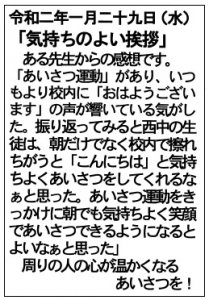 令和二年一月二十九日（水）
「気持ちのよい挨拶」
ある先生からの感想です。
「あいさつ運動」があり、いつ
もより校内に「おはようござい
ます」の声が響いている気がし
た。振り返ってみると西中の生
徒は、朝だけでなく校内で擦れ
ちがうと「こんにちは」と気持
ちよくあいさつをしてくれるな
ぁと思った。あいさつ運動をき
っかけに朝でも気持ちよく笑顔
であいさつできるようになると
よいなぁと思った」
周りの人の心が温かくなる
あいさつを！